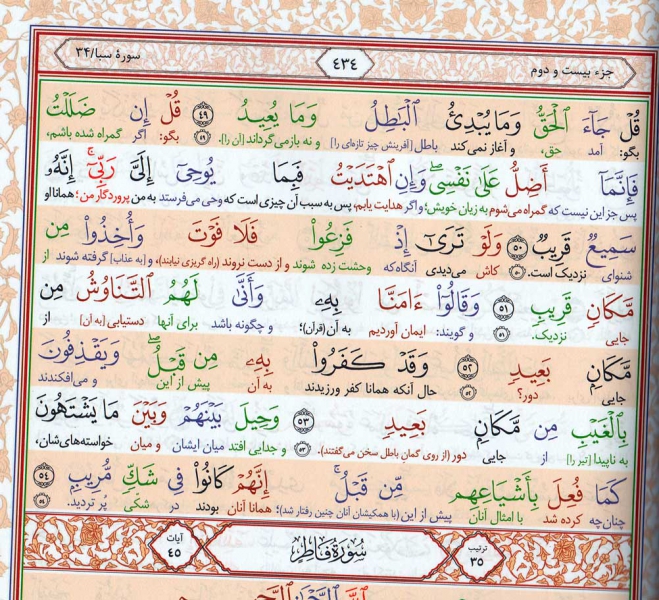 جزء بیست و دوم ۴۳۴ سورهٔ سبا/۳۴
قُلْ جَآءَ ٱلْحَقُّ وَمَا يُبْدِئُ ٱلْبَٰطِلُ وَمَا يُعِيدُ ۴۹ قُلْ إِن ضَلَلْتُ
بگو: آمد حق، و آغاز نمی‌کند باطل [آفرینش چیز تازه‌ای را] و نه بازمی‌گرداند [آن را]. ۴۹ بگو: اگر گمراه شده باشم،
فَإِنَّمَآ أَضِلُّ عَلَىٰ نَفْسِى ۖ وَإِنِ ٱهْتَدَيْتُ فَبِمَا يُوحِىٓ إِلَىَّ رَبِّىٓ ۚ إِنَّهُۥ
پس جز این نیست که گمراه می‌شوم به زیان خویش؛ و اگر هدایت یابم، پس به سبب آن چیزی است که وحی می‌فرستد به من پروردگار من؛ همانا او
سَمِيعٌ قَرِيبٌ ۵۰ وَلَوْ تَرَىٰٓ إِذْ فَزِعُوا۟ فَلَا فَوْتَ وَأُخِذُوا۟ مِن
شنوای نزدیک است. ۵۰ کاش می‌دیدی آنگاه‌که وحشت زده شوند و از دست نروند (راه گریزی نیابند)، و [به عذاب] گرفته شوند از
مَّكَانٍ قَرِيبٍ ۵۱ وَقَالُوٓا۟ ءَامَنَّا بِهِۦ وَأَنَّىٰ لَهُمُ ٱلتَّنَاوُشُ مِن
جایی نزدیک. ۵۱ و گویند: ایمان آوردیم به آن (قرآن)؛ و چگونه باشد برای آنها دستیابی [به آن] از
مَّكَانٍ بَعِيدٍ ۵۲ وَقَدْ كَفَرُوا۟ بِهِۦ مِن قَبْلُ ۖ وَيَقْذِفُونَ
جایی دور؟ ۵۲ حال آنکه همانا کفر ورزیدند به آن پیش از این و می‌افکندند
بِٱلْغَيْبِ مِن مَّكَانٍ بَعِيدٍ ۵۳ وَحِيلَ بَيْنَهُمْ وَبَيْنَ مَا يَشْتَهُونَ
به ناپیدا [تیر را] از جایی دور (از روی گمان باطل سخن می‌گفتند). ۵۳ و جدایی افتد میان ایشان و میان خواسته‌های‌شان،
كَمَا فُعِلَ بِأَشْيَاعِهِم مِّن قَبْلُ ۚ إِنَّهُمْ كَانُوا۟ فِى شَكٍّ مُّرِيبٍۭ ۵۴
چنان‌چه کرده شد با امثال آنان پیش از این (با همکیشان آنان چنین رفتار شد)؛ همانا آنان بودند در شکی پُر تردید. ۵۴
ترتیب ۳۵ سُورَةُ فَاطِر آیات ۴۵